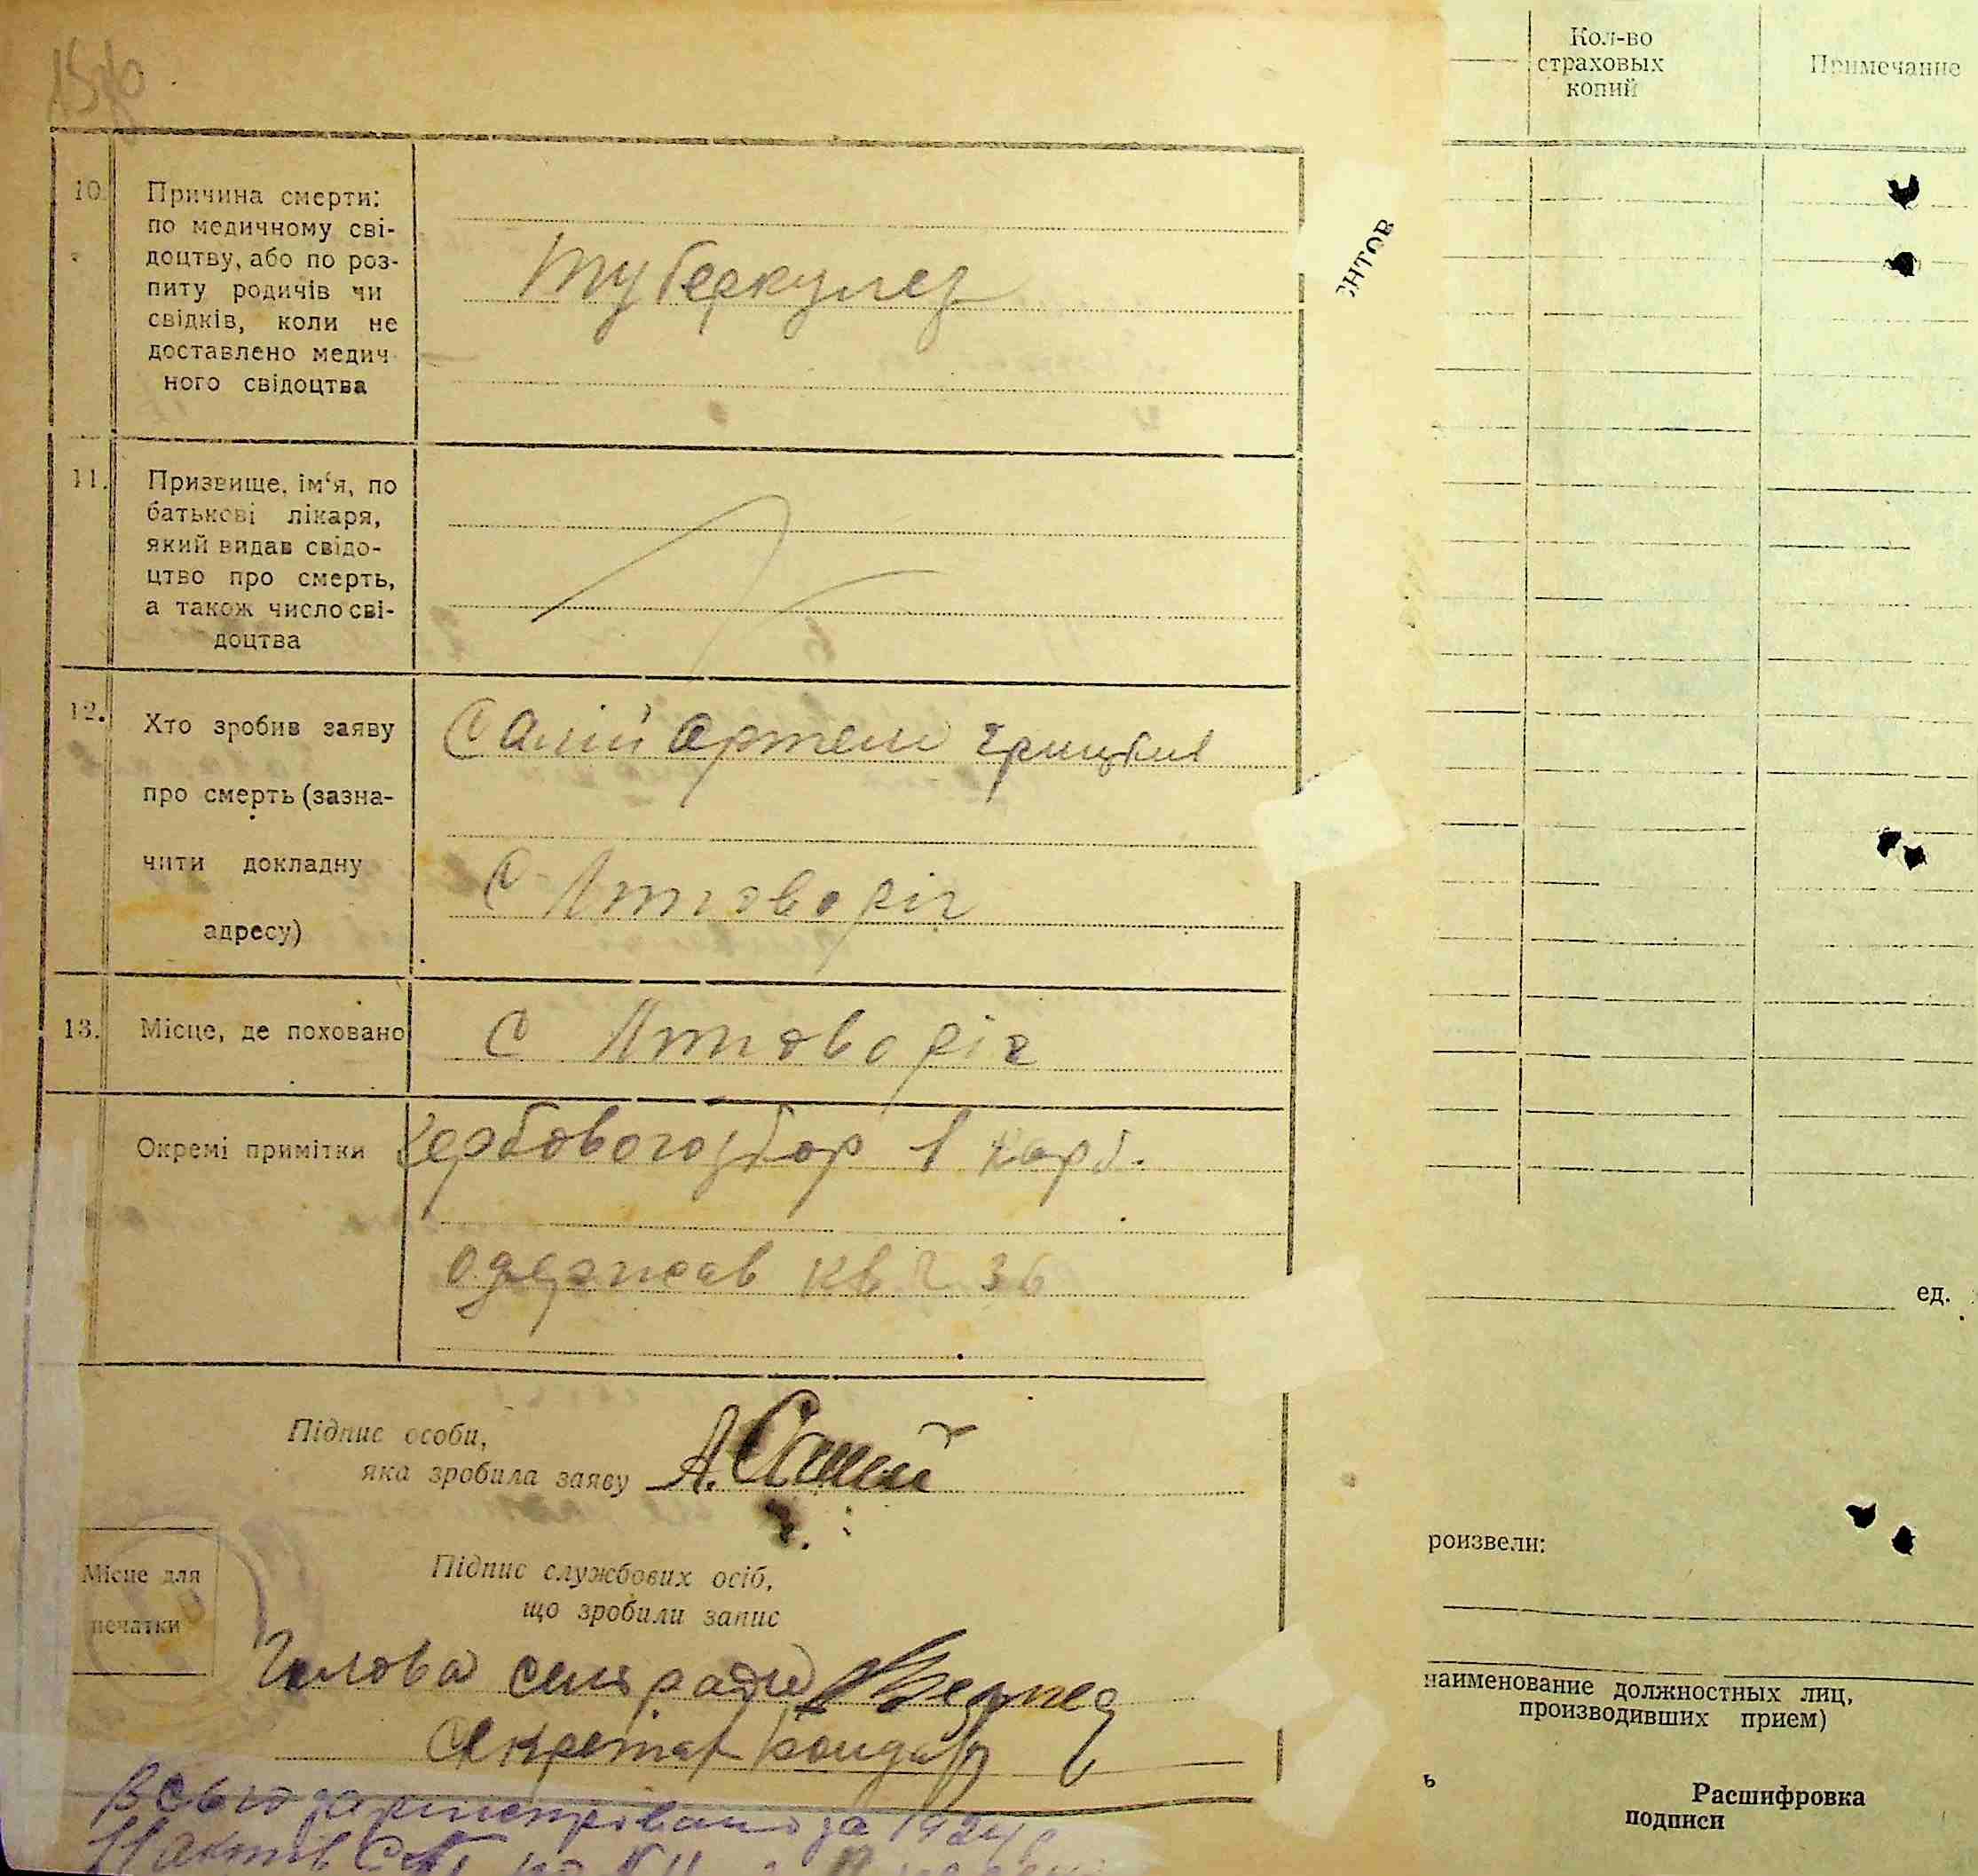 Кол-во
страховых
копий
Примечание
10.
Причина смерти:
по медичному сві-
доцтву, або по роз-
питу родичів чи
свідків, коли не
доставлено медич
ного свідоцтва
Туберкулез
11.
Призвище, ім'я, по
батькові лікаря,
який видав свідо-
цтво про смерть,
а також число сві-
доцтва
12.
Хто зробив заяву
про смерть (зазна-
чити докладну
адресу)
Салій Артем Грицьків
С Ліпове ріг
13.
Місце, де поховано
С Ліпове ріг
Окремі примітки
гербового збор 1 карб.
одержав кв 2 36
Підпис особи,
яка зробила заяву
А. Салій
Місце для
печатки
Підпис службових осіб,
що зробили запис
Голова сільради
Секретар Бондар
Всього зарпєстрівано за 1924 р
ед.
роизвели:
наименование должностных лиц,
производивших прием)
ь
Расшифровка
подписи